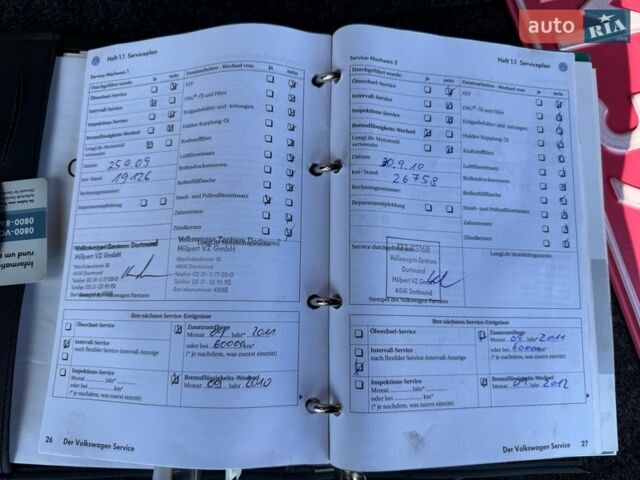 auto RIA .com
Heft 1.1 Serviceplan
Service-Nachweis 1
Durchgeführt wurde: ja nein
Ölwechsel-Service
Intervall-Service
Inspektions-Service
Bremsflüssigkeits-Wechsel
LongLife-Motoröl
verwendet
Datum: 25.9.09
km-Stand: 19126
Rechnungsnummer:
Reparaturempfehlung
Zusatzarbeiten - Wechsel von: ja nein
ATF
DSG® Öl und Filter
Erdgasbehälter und -leitungen
Haldex-Kupplung-Öl
Kraftstofffilter
Luftfiltereinsatz
Reifendrucksensoren
Reifenfüllflasche
Staub- und Pollenfiltereinsatz
Zahnriemen
Zündkerzen
Volkswagen Zentrum Dortmund
Hülpert VZ GmbH
44141 Dortmund
Volkswagen Zentrum Dortmund
Hülpert VZ GmbH
44141 Dortmund
Betriebsnummer 43168
Ihre nächsten Service-Ereignisse
Ölwechsel-Service
Intervall-Service
nach flexibler Service-Intervall-Anzeige
Inspektions-Service
Monat Jahr*
oder bei km*
(* je nachdem, was zuerst eintritt)
Zusatzumfänge
Monat 09 Jahr* 2011
oder bei 60000 km*
(* je nachdem, was zuerst eintritt)
Bremsflüssigkeits-Wechsel
Monat 09 Jahr 2010
26 Der Volkswagen Service
Service-Nachweis 2
Heft 1.1 Serviceplan
Durchgeführt wurde: ja nein
Ölwechsel-Service
Intervall-Service
Inspektions-Service
Bremsflüssigkeits-Wechsel
LongLife-Motoröl
verwendet
Datum: 30.9.10
km-Stand: 26758
Rechnungsnummer:
Reparaturempfehlung
Zusatzarbeiten - Wechsel von: ja nein
ATF
DSG® Öl und Filter
Erdgasbehälter und -leitungen
Haldex-Kupplung-Öl
Kraftstofffilter
Luftfiltereinsatz
Reifendrucksensoren
Reifenfüllflasche
Staub- und Pollenfiltereinsatz
Zahnriemen
Zündkerzen
LongLife Mobilitätsgarantie:
Service durchgeführt
Volkswagen Zentrum
Dortmund
Hülpert VZ GmbH
44141 Dortmund
Stempel des Volkswagen Partners
Ihre nächsten Service-Ereignisse
Ölwechsel-Service
Intervall-Service
nach flexibler Service-Intervall-Anzeige
Inspektions-Service
Monat Jahr*
oder bei km*
(* je nachdem, was zuerst eintritt)
Zusatzumfänge
Monat 09 Jahr* 2011
oder bei 60000 km*
(* je nachdem, was zuerst eintritt)
Bremsflüssigkeits-Wechsel
Monat 09 Jahr 2012
Der Volkswagen Service 27